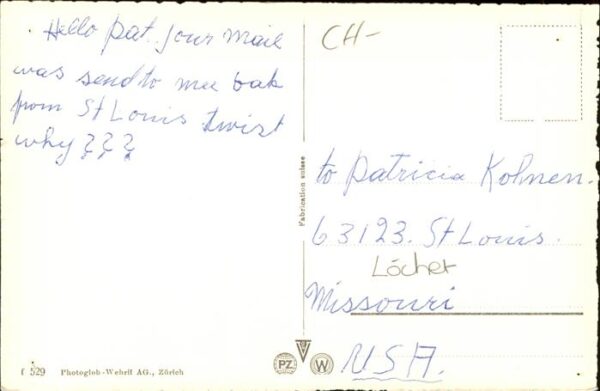 Hello pat. your mail
was send to mee bak
from St Louis twist
why ???
CH-
Fabrication suisse
to Patricia Kohnen.
63123. St Louis.
Löcher
Missouri
USA.
f 529 Photoglob-Wehrli AG., Zürich
PZ
W